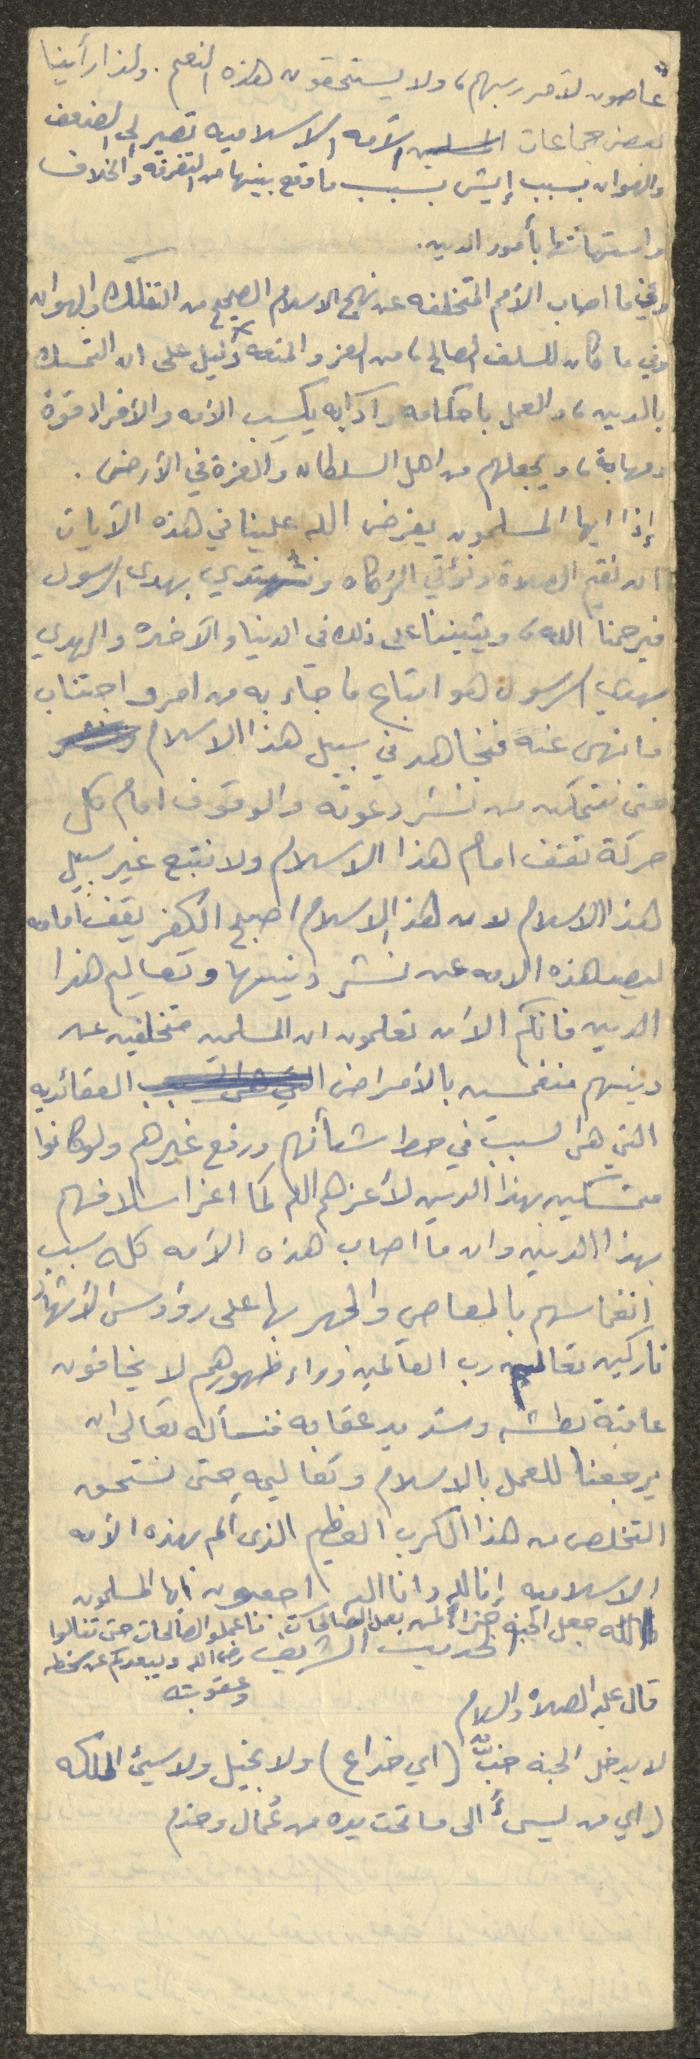 عاصون لأمر ربهم، ولا يستحقون هذه النعم. ولذا رأينا
بعض جماعات الأمه الاسلاميه تصير الى الضعف
والهوان بسبب ما وقع بينها من التفرقه والخلاف
واستهانتها بأمور الدين.
وفي ما اصاب الأمم المتخلفه عن نهج الاسلام الصحيح من التفكك والهوان
وفي ما كان للسلف الصالح، من العز والمنعه دليل على ان التمسك
بالدين، والعمل باحكامه وآدابه يكسب الأمه والأفراد قوة
ومهابة، ويجعلهم من اهل السلطان والعزة في الأرض.
إذا ايها المسلمون يفرض الله علينا في هذه الآيات
ان نقيم الصلاة ونؤتي الزكاه ونهتدي بهدى الرسول
فيرحمنا الله، ويثيبنا على ذلك في الدنيا والآخره والهدي
بهدي الرسول هو اتباع ما جاء به من امر واجتناب
ما نهى عنه فنجاهد في سبيل هذا الاسلام
حتى نتمكن من نشر دعوته والوقوف امام كل
حركة تقف امام هذا الاسلام ولا نتبع غير سبيل
هذا الاسلام لان هذا الاسلام اصبح الكفر يقف امامه
ليصد هذه الامه عن نشر دينها وتعاليم هذا
الدين فانكم الآن تعلمون ان المسلمين متخلفين عن
دينهم منغمسين بالأمراض العقائديه
التي هي السبب في حط شأنهم ورفع غيرهم ولو كانوا
متمسكين بهذا الدين لأعزهم الله كما اعز اسلافهم
بهذا الدين وان ما اصاب هذه الأمه كله سبب
انغماسهم بالمعاصي والجهر بها على رؤوس الأشهاد
تاركين تعاليم رب العالمين وراء ظهورهم لا يخافون
عاقبة بطشه وشديد عقابه فنسأله تعالى ان
يرجعنا للعمل بالاسلام وتعاليمه حتى نستحق
التخلص من هذا الكرب العظيم الذي ألم بهذه الأمه
الاسلاميه إنا لله وانا اليه راجعون ايها المسلمون
الله جعل الجنة جزاء لمن يعمل الصالحات. فاعملوا الصالحات حتى تنالوا
رضى الله ويبعدكم عن سخطه
وعقوبته
الحديث الشريف
قال عليه الصلاه والسلام
لا يدخل الجنه خبّ (اي خداع) ولا بخيل ولا سيئ الملكه
(اي من ليسيء الى ما تحت يده من عُمال وخدم